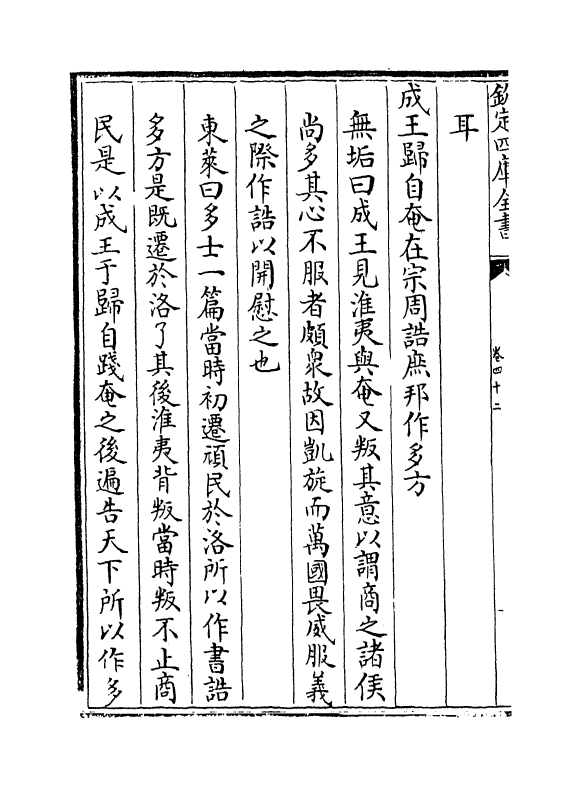 欽定四庫全書
卷四十二
耳
成王歸自奄在宗周誥庶邦作多方
無垢曰成王見淮夷與奄又叛其意以謂商之諸侯
尚多其心不服者頗衆故因凱旋而萬國畏威服義
之際作誥以開慰之也
東萊曰多士一篇當時初遷頑民於洛所以作書誥
多方是既遷於洛了其後淮夷背叛當時叛不止商
民是以成王于歸自踐奄之後遍告天下所以作多